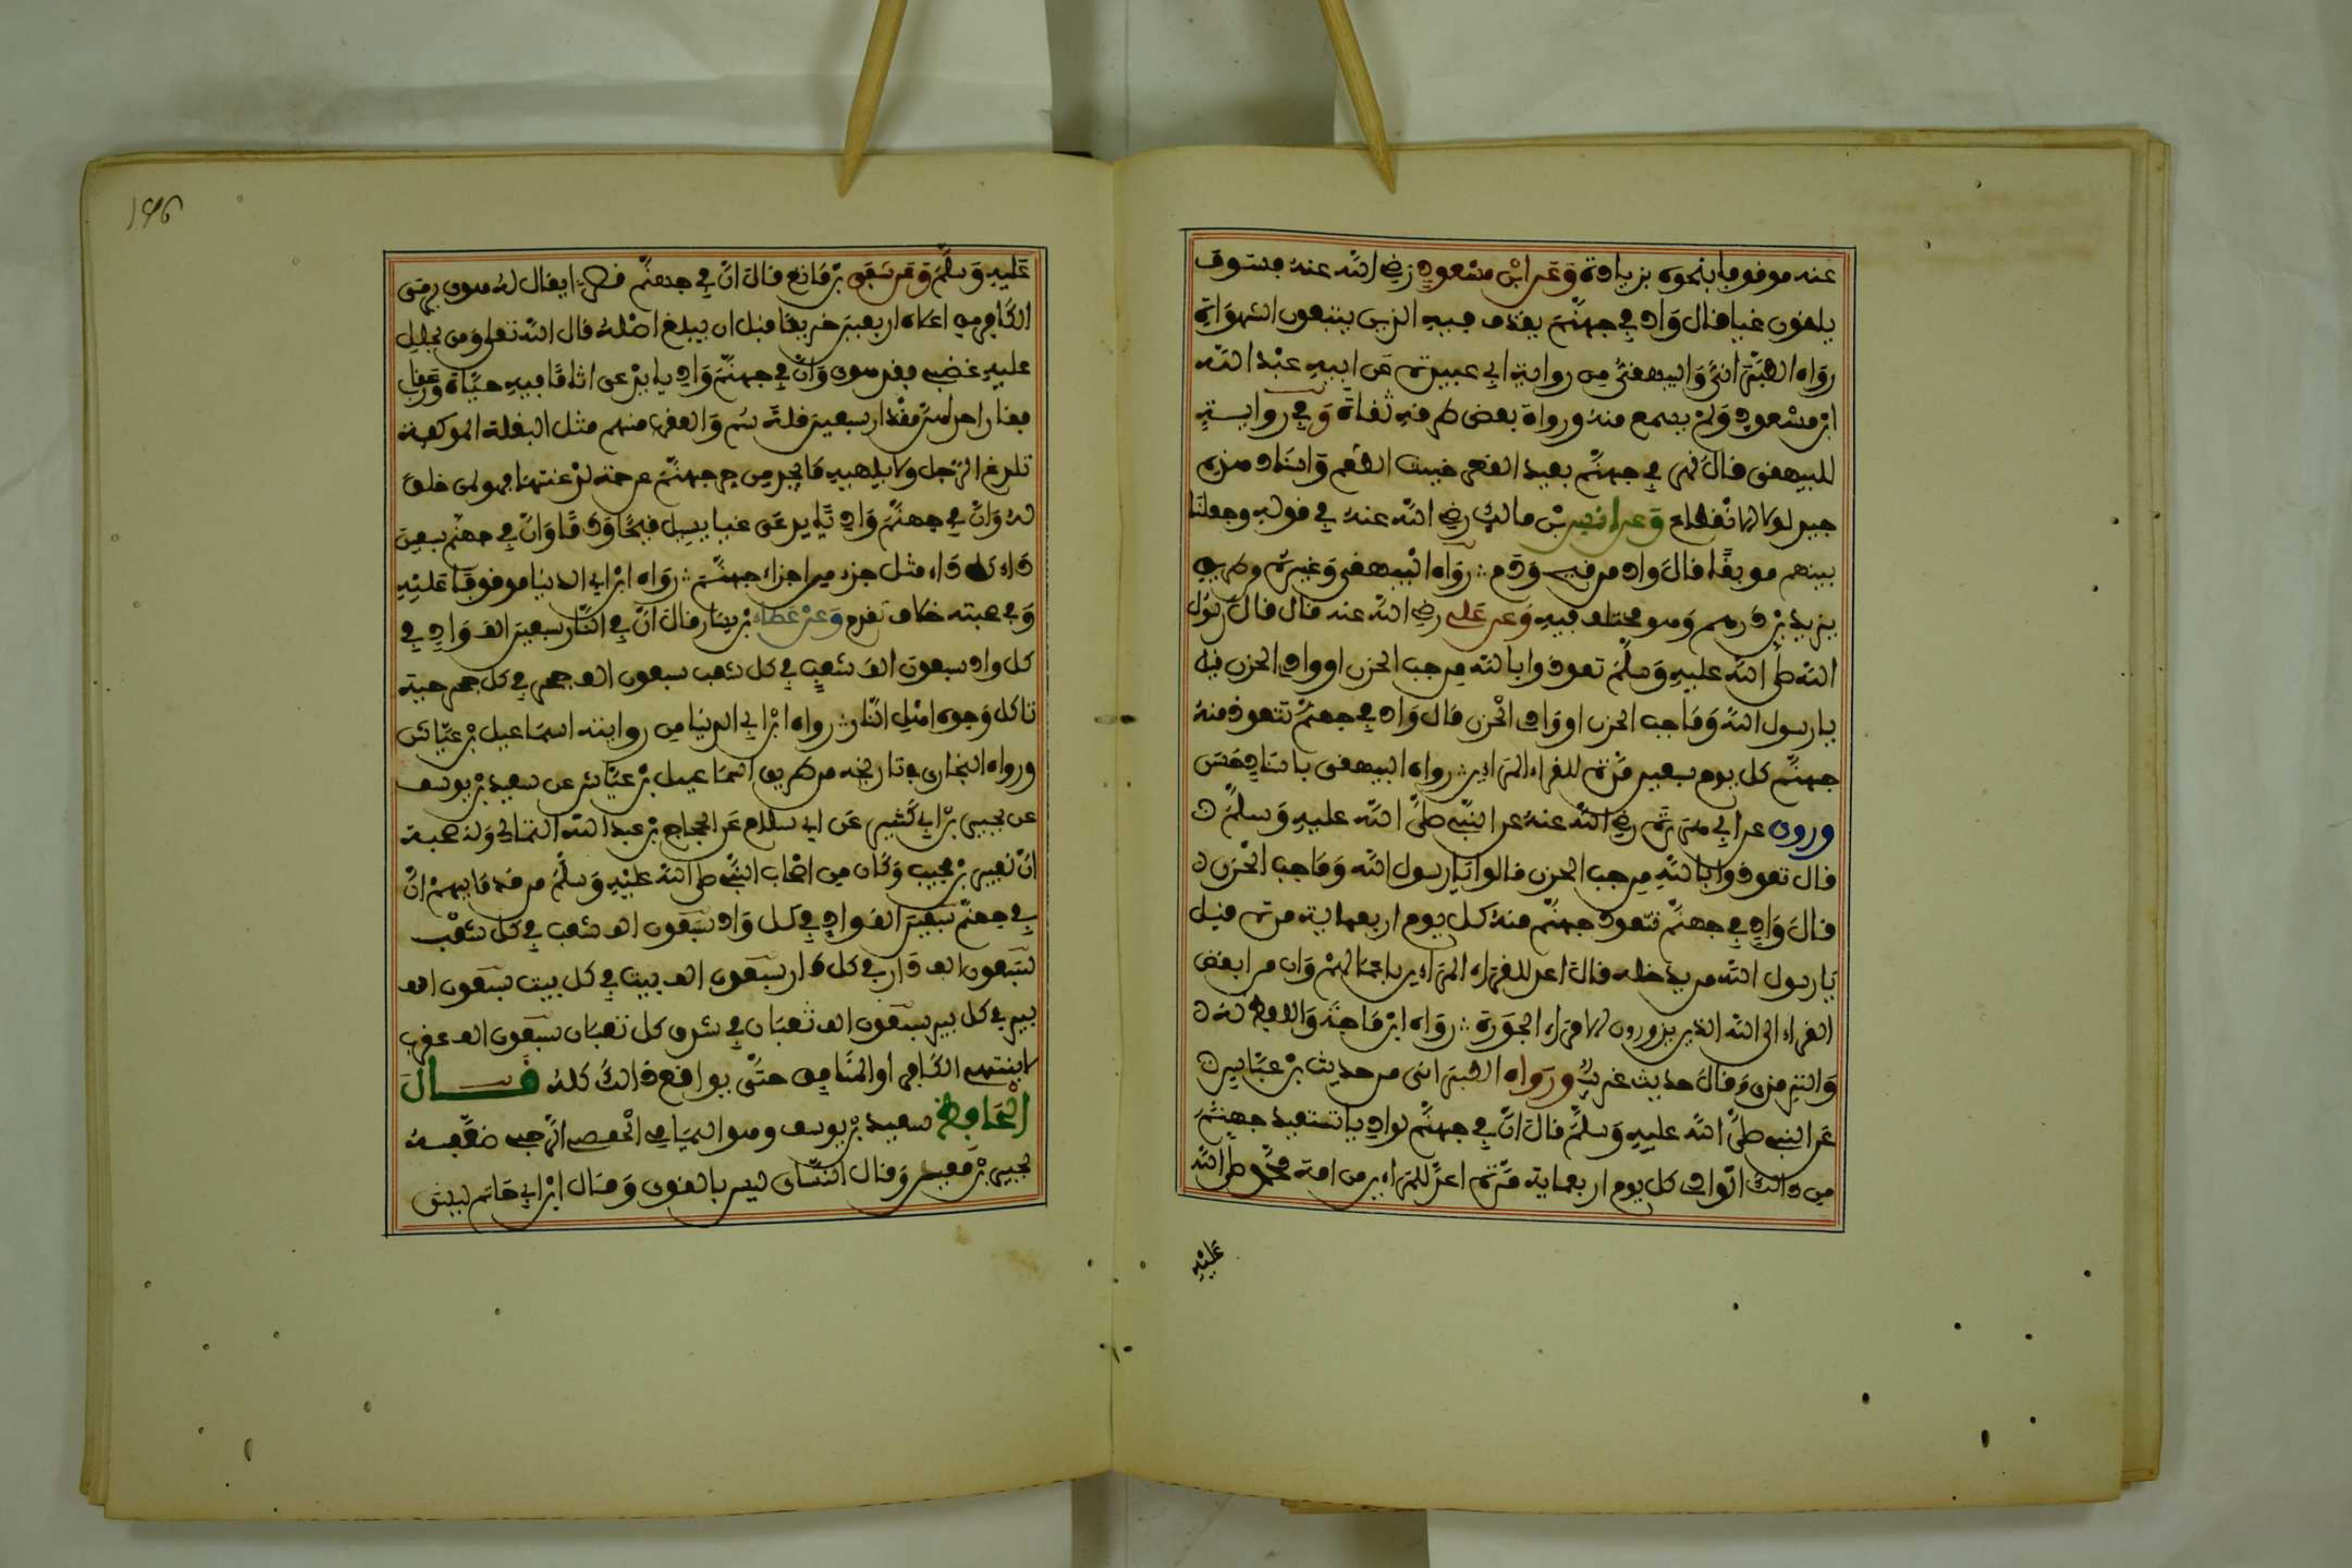 عنه موقوفا بنحوه بزيادة وعن ابن مسعود رضي الله عنه فسوف
يلقون غيا قال واد في جهنم يقذف فيه الذين يتبعون الشهوات
رواه الطبراني والبيهقي من رواية ابي عبيدة عن ابيه عبد الله
ابن مسعود ولم يسمع منه ورواة بعض طرقه ثقاة وفي رواية
للبيهقي قال نهر في جهنم بعيد القعر خبيث الطعم واسناد هذه
جيد لولا الانقطاع وعن انس بن مالك رضي الله عنه في قوله وجعلنا
بينهم موبقا قال واد من قيح ودم رواه البيهقي وغيره وطريق
يزيد بن درهم وهو مختلف فيه وعن علي رضي الله عنه قال قال رسول
الله صلى الله عليه وسلم تعوذوا بالله من جب الحزن او وادي الحزن قيل
يا رسول الله وما جب الحزن او وادي الحزن قال واد في جهنم تتعوذ منه
جهنم كل يوم سبعين مرة للقراء المرايين رواه البيهقي باسناد حسن
وروي عن ابي هريرة رضي الله عنه عن النبي صلى الله عليه وسلم
قال تعوذوا بالله من جب الحزن قالوا يا رسول الله وما جب الحزن
قال واد في جهنم تتعوذ جهنم منه كل يوم اربعماية مرة قيل
يا رسول الله من يدخله قال اعد للقراء المراءين باعمالهم وان من ابغض
القراء الى الله الذين يزورون الامراء الجورة رواه ابن ماجة واللفظ له
والترمذي وقال حديث غريب ورواه الطبراني من حديث بن عباس
عن النبي صلى الله عليه وسلم قال ان في جهنم لواديا تستعيذ جهنم
من ذالك الوادي كل يوم اربعماية مرة اعد للمراءين من امة محمد صلى الله
عليه
عليه وسلم وعن شفي بن ماتع قال ان في جهنم قصرا يقال له هوى يرمى
الكافر من اعلاه اربعين خريفا قبل ان يبلغ اصله قال الله تعلى ومن يحلل
عليه غضبي فقد هوى وان في جهنم واديا يدعى اثاما فيه حيات وعقا
رب
فقار احداهن مقدار سبعين قلة سم والعقرب منهم مثل البغلة الموكفة
تلدغ الرجل ولا يلهيه ما يجد من حر جهنم عن حمة لدغتها فهو لمن خلق
له وان في جهنم واديا يدعى غيا يسيل قيحا ودما وان في جهنم سبعين
داء كل داء مثل جزء من اجزاء جهنم رواه ابن ابي الدنيا موقوفا عليه
وفي صحبته خلاف تقدم وعن عطاء بن يسار قال ان في النار سبعين الف واد في
كل واد سبعون الف شعب في كل شعب سبعون الف جحر في كل جحر حية
تاكل وجوه اهل النار رواه ابن ابي الدنيا من رواية اسماعيل بن عياش
ورواه البخاري في تاريخه من طريق اسماعيل بن عياش عن سعيد بن يوسف
عن يحيى بن ابي كثير عن ابي سلام عن الحجاج بن عبد الله الثمالي وله صحبة
ان نفير بن مجيب وكان من اصحاب النبي صلى الله عليه وسلم من قدمائهم ان
في جهنم سبعين الف واد في كل واد سبعون الف شعب في كل شعب
سبعون الف دار في كل دار سبعون الف بيت في كل بيت سبعون الف
بير في كل بير سبعون الف ثعبان في شدق كل ثعبان سبعون الف عقرب
لا ينتهي الكافر او المنافق حتى يواقع ذالك كله قال
الحافظ سعيد بن يوسف وهو اليمامي الحمصي الرحبي ضعفه
يحيى بن معين وقال النسائي ليس بالقوي وقال ابن ابي حاتم ليس